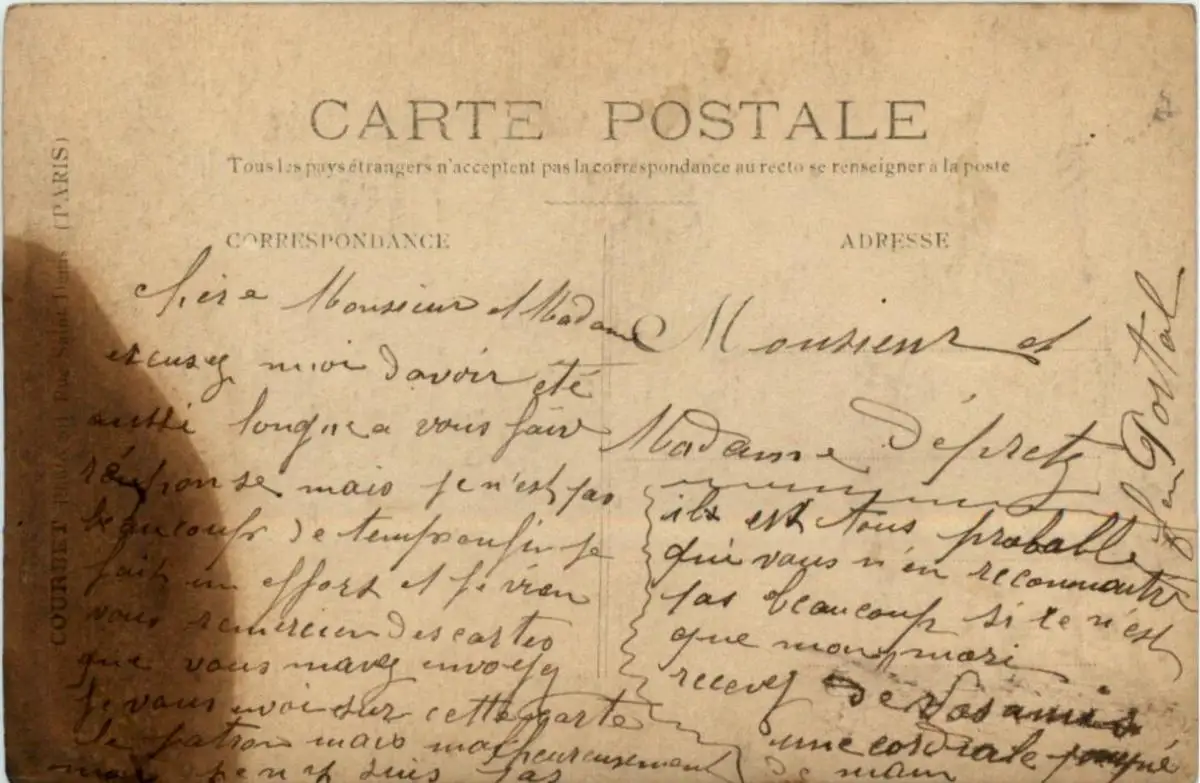 CARTE POSTALE
Tous les pays étrangers n'acceptent pas la correspondance au recto se renseigner à la poste
CORRESPONDANCE
ADRESSE
COURBET Rue Saint Denis (PARIS)
chère Monsieur et Madame
excusez moi davoir été
aussi longue a vous fair
réuponse mais je n'est pas
beaucoup de temps enfin je
fait un effort et je vien
vous remercier des cartes
que vous mavez envoyez
je vous envoi sur cette carte
le patron mais malheureusement
moi je n'y suis pas
Monsieur et
Madame Dépretz
ils est tous probable
que vous n'en reconnaitre
pas beaucoup si ce n'est
que mon mari
recevez de vos amis
une cordiale poigné
de main
Postal